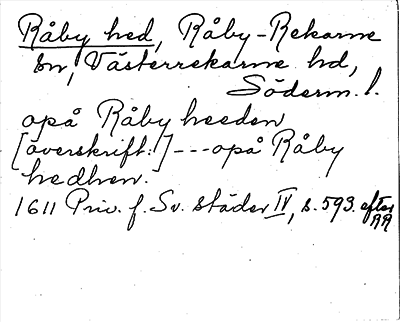 Råby hed, Råby-Rekarne
sn, Västerrekarne hd,
Söderm. l.
opå Råby heeden
[överskrift:] --- opå Råby
hedhen.
1611 Priv. f. Sv. städer IV, s. 593. efter
RA